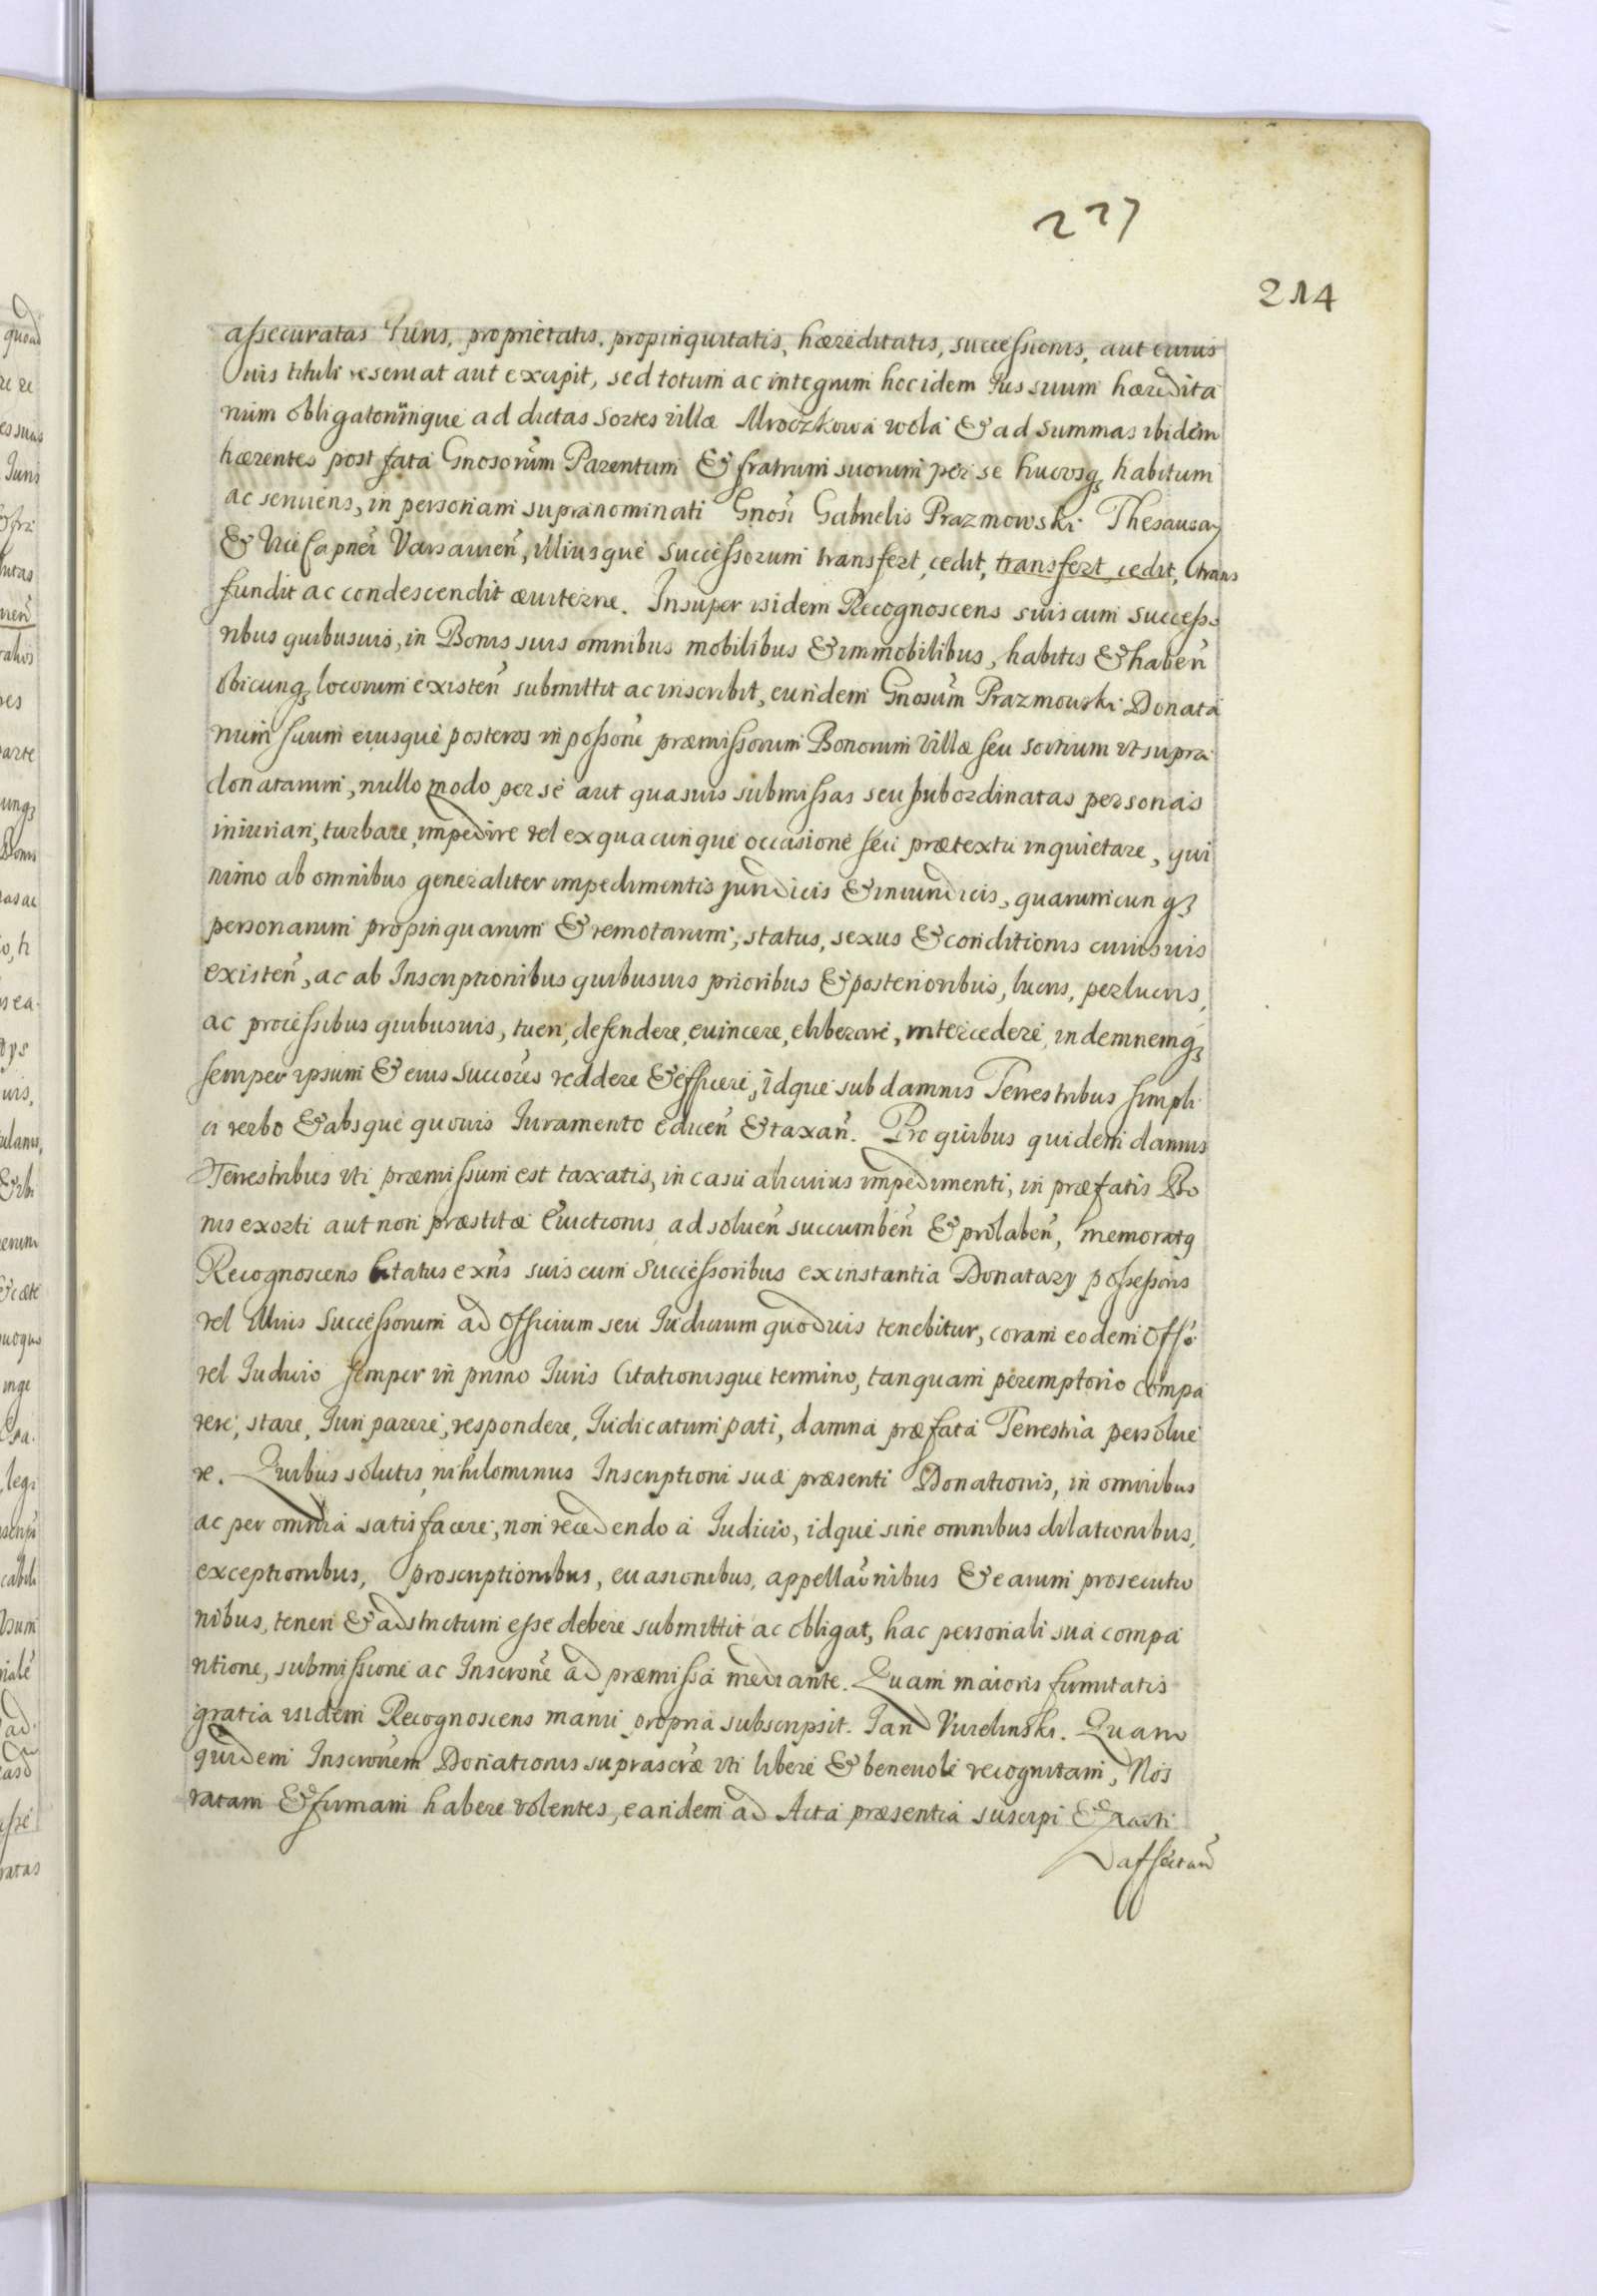 227
214
assecuratas Juris, proprietatis, propinquitatis, hæreditatis, successionis, aut cuius
uis tituli reseruat aut excipit, sed totum ac integrum hoc idem Jus suum hæredita
rium obligatoriumque ad dictas sortes villæ Mroczkowa wola & ad summas ibidem
hærentes post fata Gnosorum Parentum & fratrum suorum per se hucusq₃ habitum
ac seruiens, in personam supranominati Gnosi Gabrielis Prazmowski Thesaurary
& Vice Capnei Varsauien̄, illiusque successorum transfert, cedit, transfert, cedit, trans
fundit ac condescendit æuiterne. Insuper isidem Recognoscens suis cum success:
ribus quibusuis, in Bonis suis omnibus mobilibus & immobilibus, habitis & haben̄
vbicunq₃ locorum existen̄ submittit ac inscribit, eundem Gnosum Prazmowski Donata
rium suum eiusque posteros in posson̄e præmissorum Bonorum Villæ seu sortium vt supra
donatarum, nullo modo per se aut quasuis submissas seu subordinatas personas
iniuriari, turbare, impedire vel ex quacunque occasione seu prætextu inquietare, qui
nimo ab omnibus generaliter impedimentis juridicis & iniuridicis, quarumcunq₃
personarum propinquarum & remotarum, status, sexus & conditionis cuiusuis
existen̄, ac ab Inscriptionibus quibusuis prioribus & posterioribus, lucris, perlucris,
ac processibus quibusuis, tueri, defendere, euincere, eliberare, intercedere, indemnemq₃
semper ipsum & eius succores reddere & efficere, idque sub damnis Terrestribus simpli
ci verbo & absque quouis Juramento educen̄ & taxan̄. Pro quibus quidem damnis
Terrestribus vti præmissum est taxatis, in casu alicuius impedimenti, in præfatis Bo
nis exorti aut non præstitæ Euictionis ad soluen̄ succumben̄ & prolaben̄, memoratq
Recognoscens Citatus exn̄s suis cum Successoribus ex instantia Donatary possessoris
vel illius Successorum ad Officium seu Judicium quoduis tenebitur, coram eodem Offo
vel Judicio semper in primo Juris Citationisque termino, tanquam peremptorio compa
rere, stare, Juri parere, respondere, Judicatum pati, damna præfata Terrestria persolue
re. Quibus solutis, nihilominus Inscriptioni suæ præsenti Donationis, in omnibus
ac per omnia satisfacere, non recedendo a Judicio, idque sine omnibus dilationibus,
exceptionibus, proscriptionibus, euasionibus, appellaōnibus & earum prosecutio
nibus, teneri & adstrictum esse debere submittit ac obligat, hac personali sua compa
ritione, submissione ac Inscrōne ad præmissa mediante. Quam maioris firmitatis
gratia isidem Recognoscens manu propria subscripsit. Jan Vurelinski. Quam
quidem Inscrōnem Donationis suprascræ vti libere & beneuole recognitam, Nos
ratam & firmam habere volentes, eandem ad Acta præsentia suscipi &